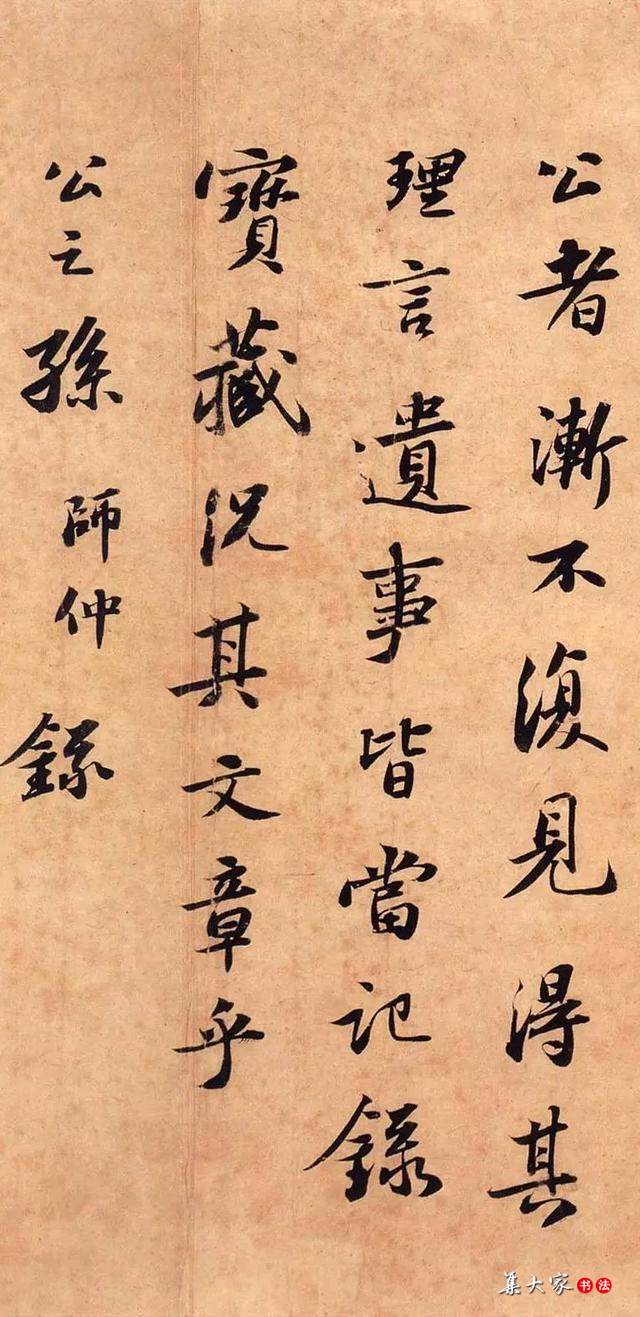 公者漸不復見得其
理言遺事皆當記錄
寶藏況其文章乎
公之孫師仲錄
集大家书法